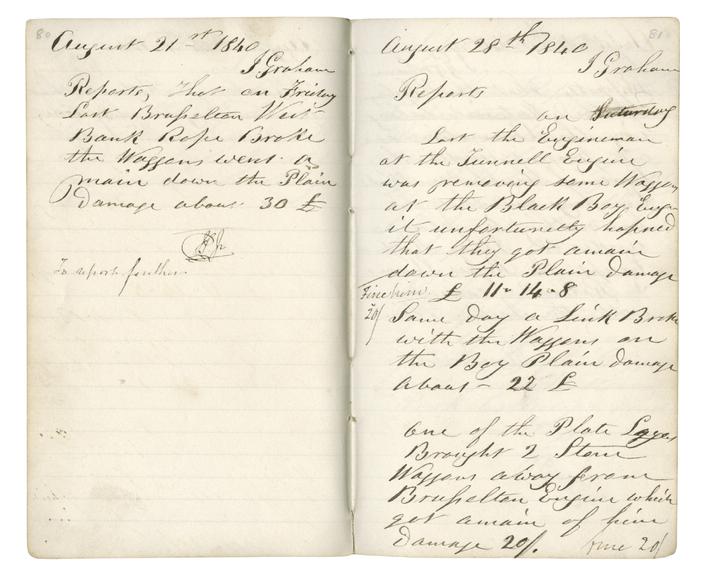 80
August 21st 1840
J Graham
Reports, That on Friday
Last Brusselton West
Bank Rope Broke
the Waggons went a
main down the Plain
Damage about 30 £
To report further
81
August 28th 1840
J Graham
Reports
on Saturday
Last the Engineman
at the Tunnell Engine
was removing some Waggons
at the Black Boy Engin
it unfortunetly hapned
that they got amain
down the Plain Damage
Fine him £ 11-14-8
20/
Same Day a Link Broke
with the Waggons on
the Boy Plain Damage
about 22 £
One of the Plate Layers
Brought 2 Stone
Waggons away from
Brusselton Engine which
got amain of him
Damage 20/. fine 20/